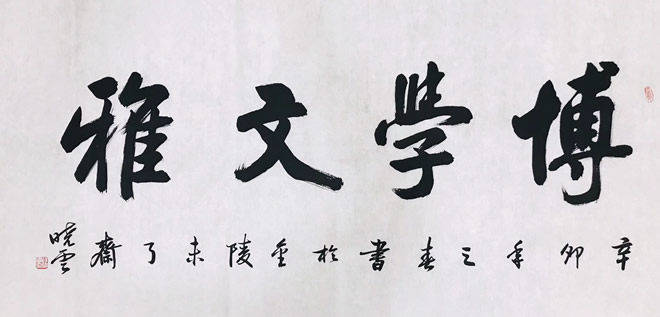 博學文雅
辛卯年之春書於金陵未了齋
曉雲